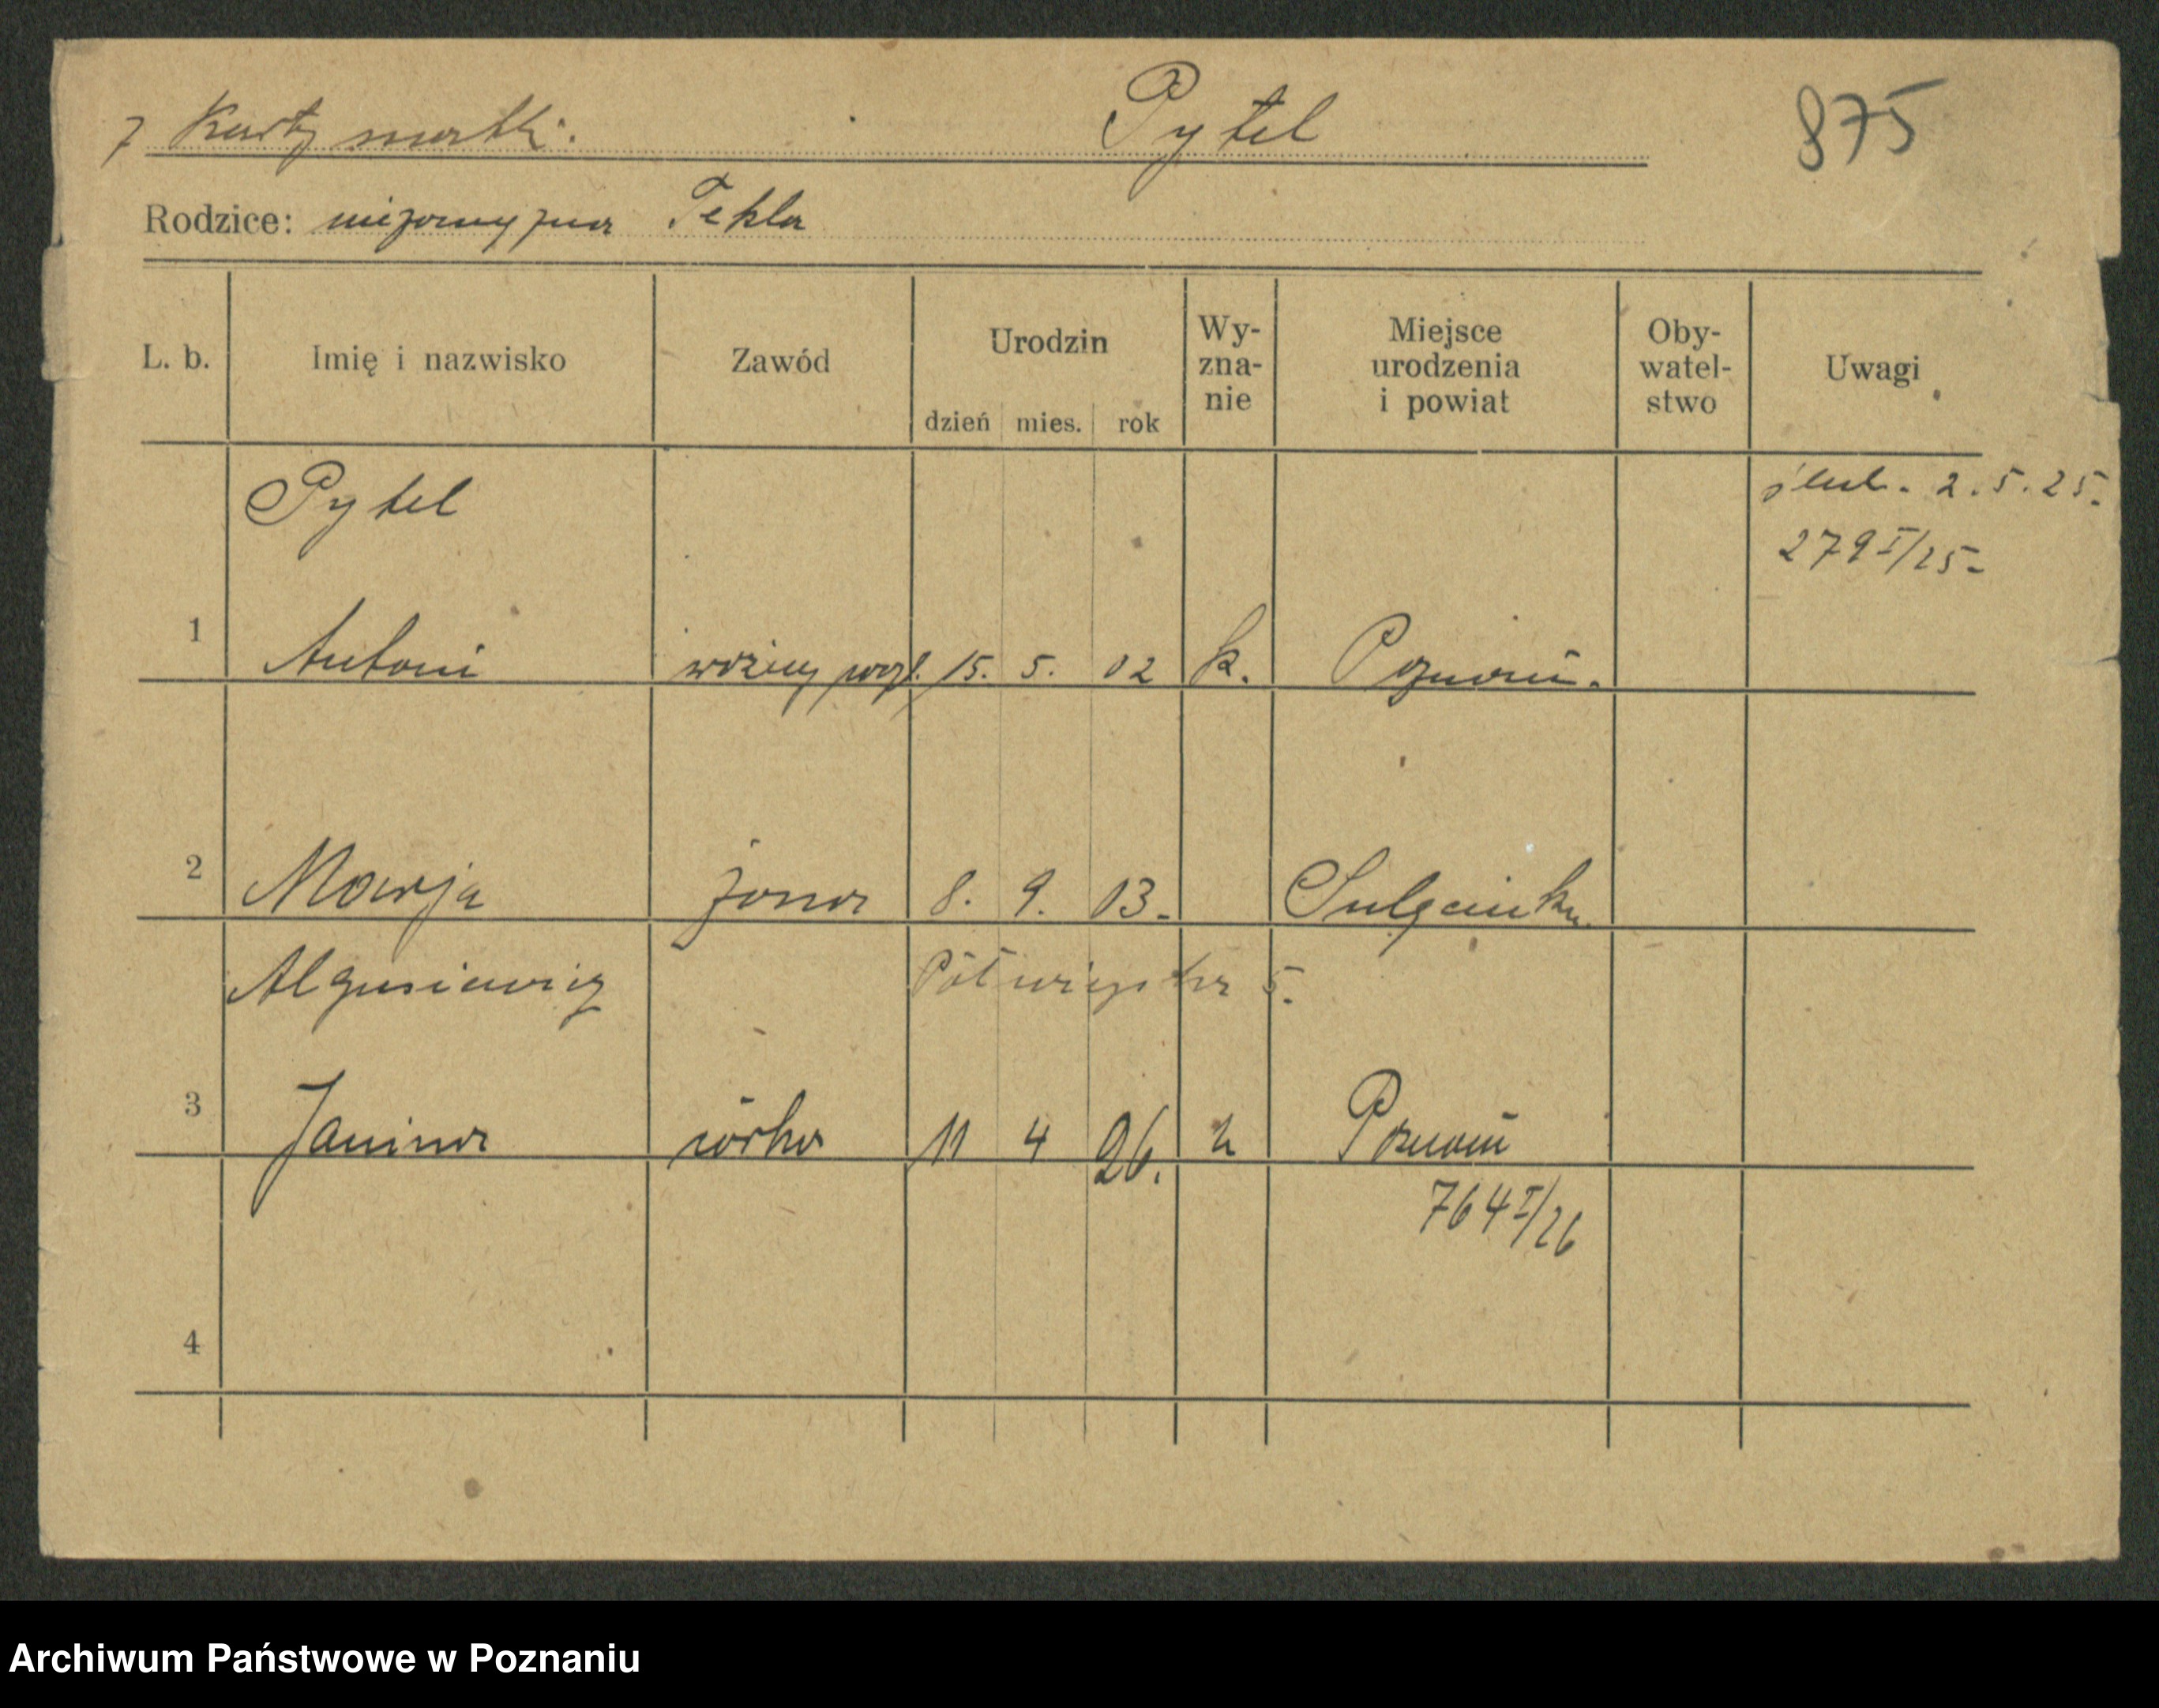 z karty matki. Pytel 875
Rodzice: niezamężna Tekla
L. b. Imię i nazwisko Zawód Urodzin dzień mies. rok Wy-zna-nie Miejsce urodzenia i powiat Oby-watel-stwo Uwagi
Pytel ślub. 2.5.25.
279 I/25-
1 Antoni woźny 15. 5. 02 k. Poznań.
2 Marja żona 8. 9. 03. Sulęcinku
Algusiewicz Półwiejska 5.
3 Janina córka 11 4 26. k Poznań
764 I/26
4
Archiwum Państwowe w Poznaniu